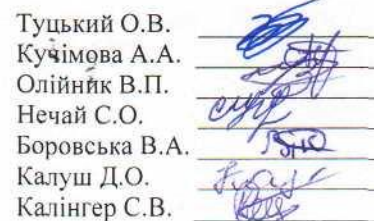 Туцький О.В.
Кучімова А.А.
Олійник В.П.
Нечай С.О.
Боровська В.А.
Калуш Д.О.
Калінгер С.В.